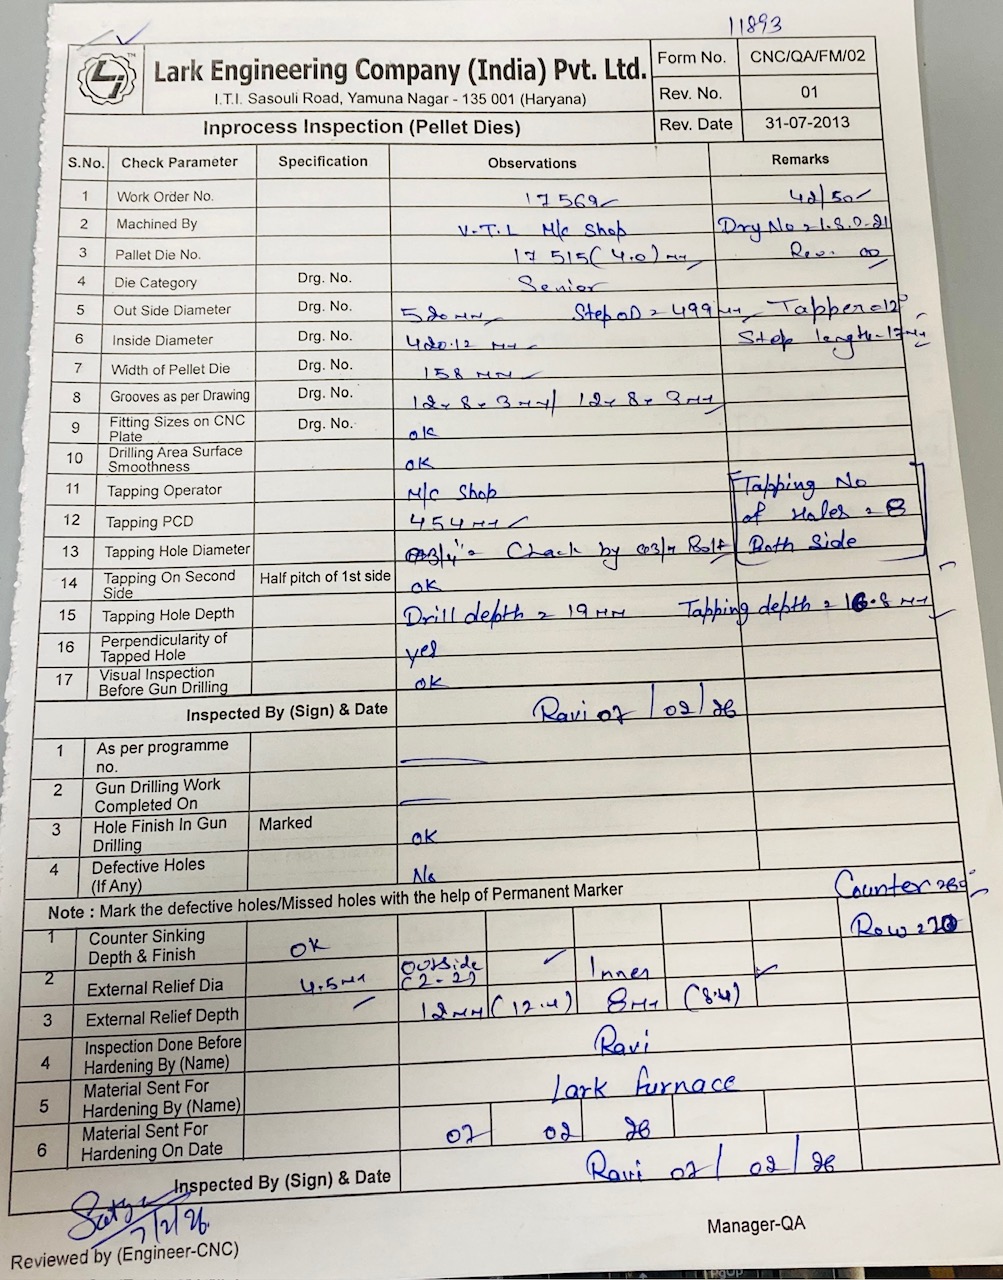 11893
Lark Engineering Company (India) Pvt. Ltd.
I.T.I. Sasouli Road, Yamuna Nagar - 135 001 (Haryana)
Form No. CNC/QA/FM/02
Rev. No. 01
Inprocess Inspection (Pellet Dies) Rev. Date 31-07-2013
S.No. Check Parameter Specification Observations Remarks
1 Work Order No. 17569 42/50
2 Machined By V.T.L M/c Shop Drg No
3 Pallet Die No. 17515 (4.0) MM Rev. 00
4 Die Category Drg. No. Senior
5 Out Side Diameter Drg. No. 520 MM Step OD = 499 MM Tapper = 12°
6 Inside Diameter Drg. No. 420.12 MM Step length - 17 MM
7 Width of Pellet Die Drg. No. 158 MM
8 Grooves as per Drawing Drg. No. 12 x 8 x 3 MM / 12 x 8 x 3 MM
9 Fitting Sizes on CNC Plate Drg. No. ok
10 Drilling Area Surface Smoothness ok
11 Tapping Operator M/c Shop Tapping No
12 Tapping PCD 454 MM of Holes = 8
13 Tapping Hole Diameter Chack by Bolt Both Side
14 Tapping On Second Side Half pitch of 1st side ok
15 Tapping Hole Depth Drill depth = 19 MM Tapping depth = 16.8 MM
16 Perpendicularity of Tapped Hole yes
17 Visual Inspection Before Gun Drilling ok
Inspected By (Sign) & Date Ravi 07/02/26
1 As per programme no.
2 Gun Drilling Work Completed On
3 Hole Finish In Gun Drilling Marked ok
4 Defective Holes (If Any) No
Note : Mark the defective holes/Missed holes with the help of Permanent Marker
Counter = 60°
Row = 20
1 Counter Sinking Depth & Finish OK
2 External Relief Dia 4.5 MM Outside (2-2) Inner
3 External Relief Depth 12 MM (12.4) 8 MM (8.4)
4 Inspection Done Before Hardening By (Name) Ravi
5 Material Sent For Hardening By (Name) Lark furnace
6 Material Sent For Hardening On Date 07 02 26
Inspected By (Sign) & Date Ravi 07/02/26
Satya
7/2/26
Reviewed by (Engineer-CNC) Manager-QA